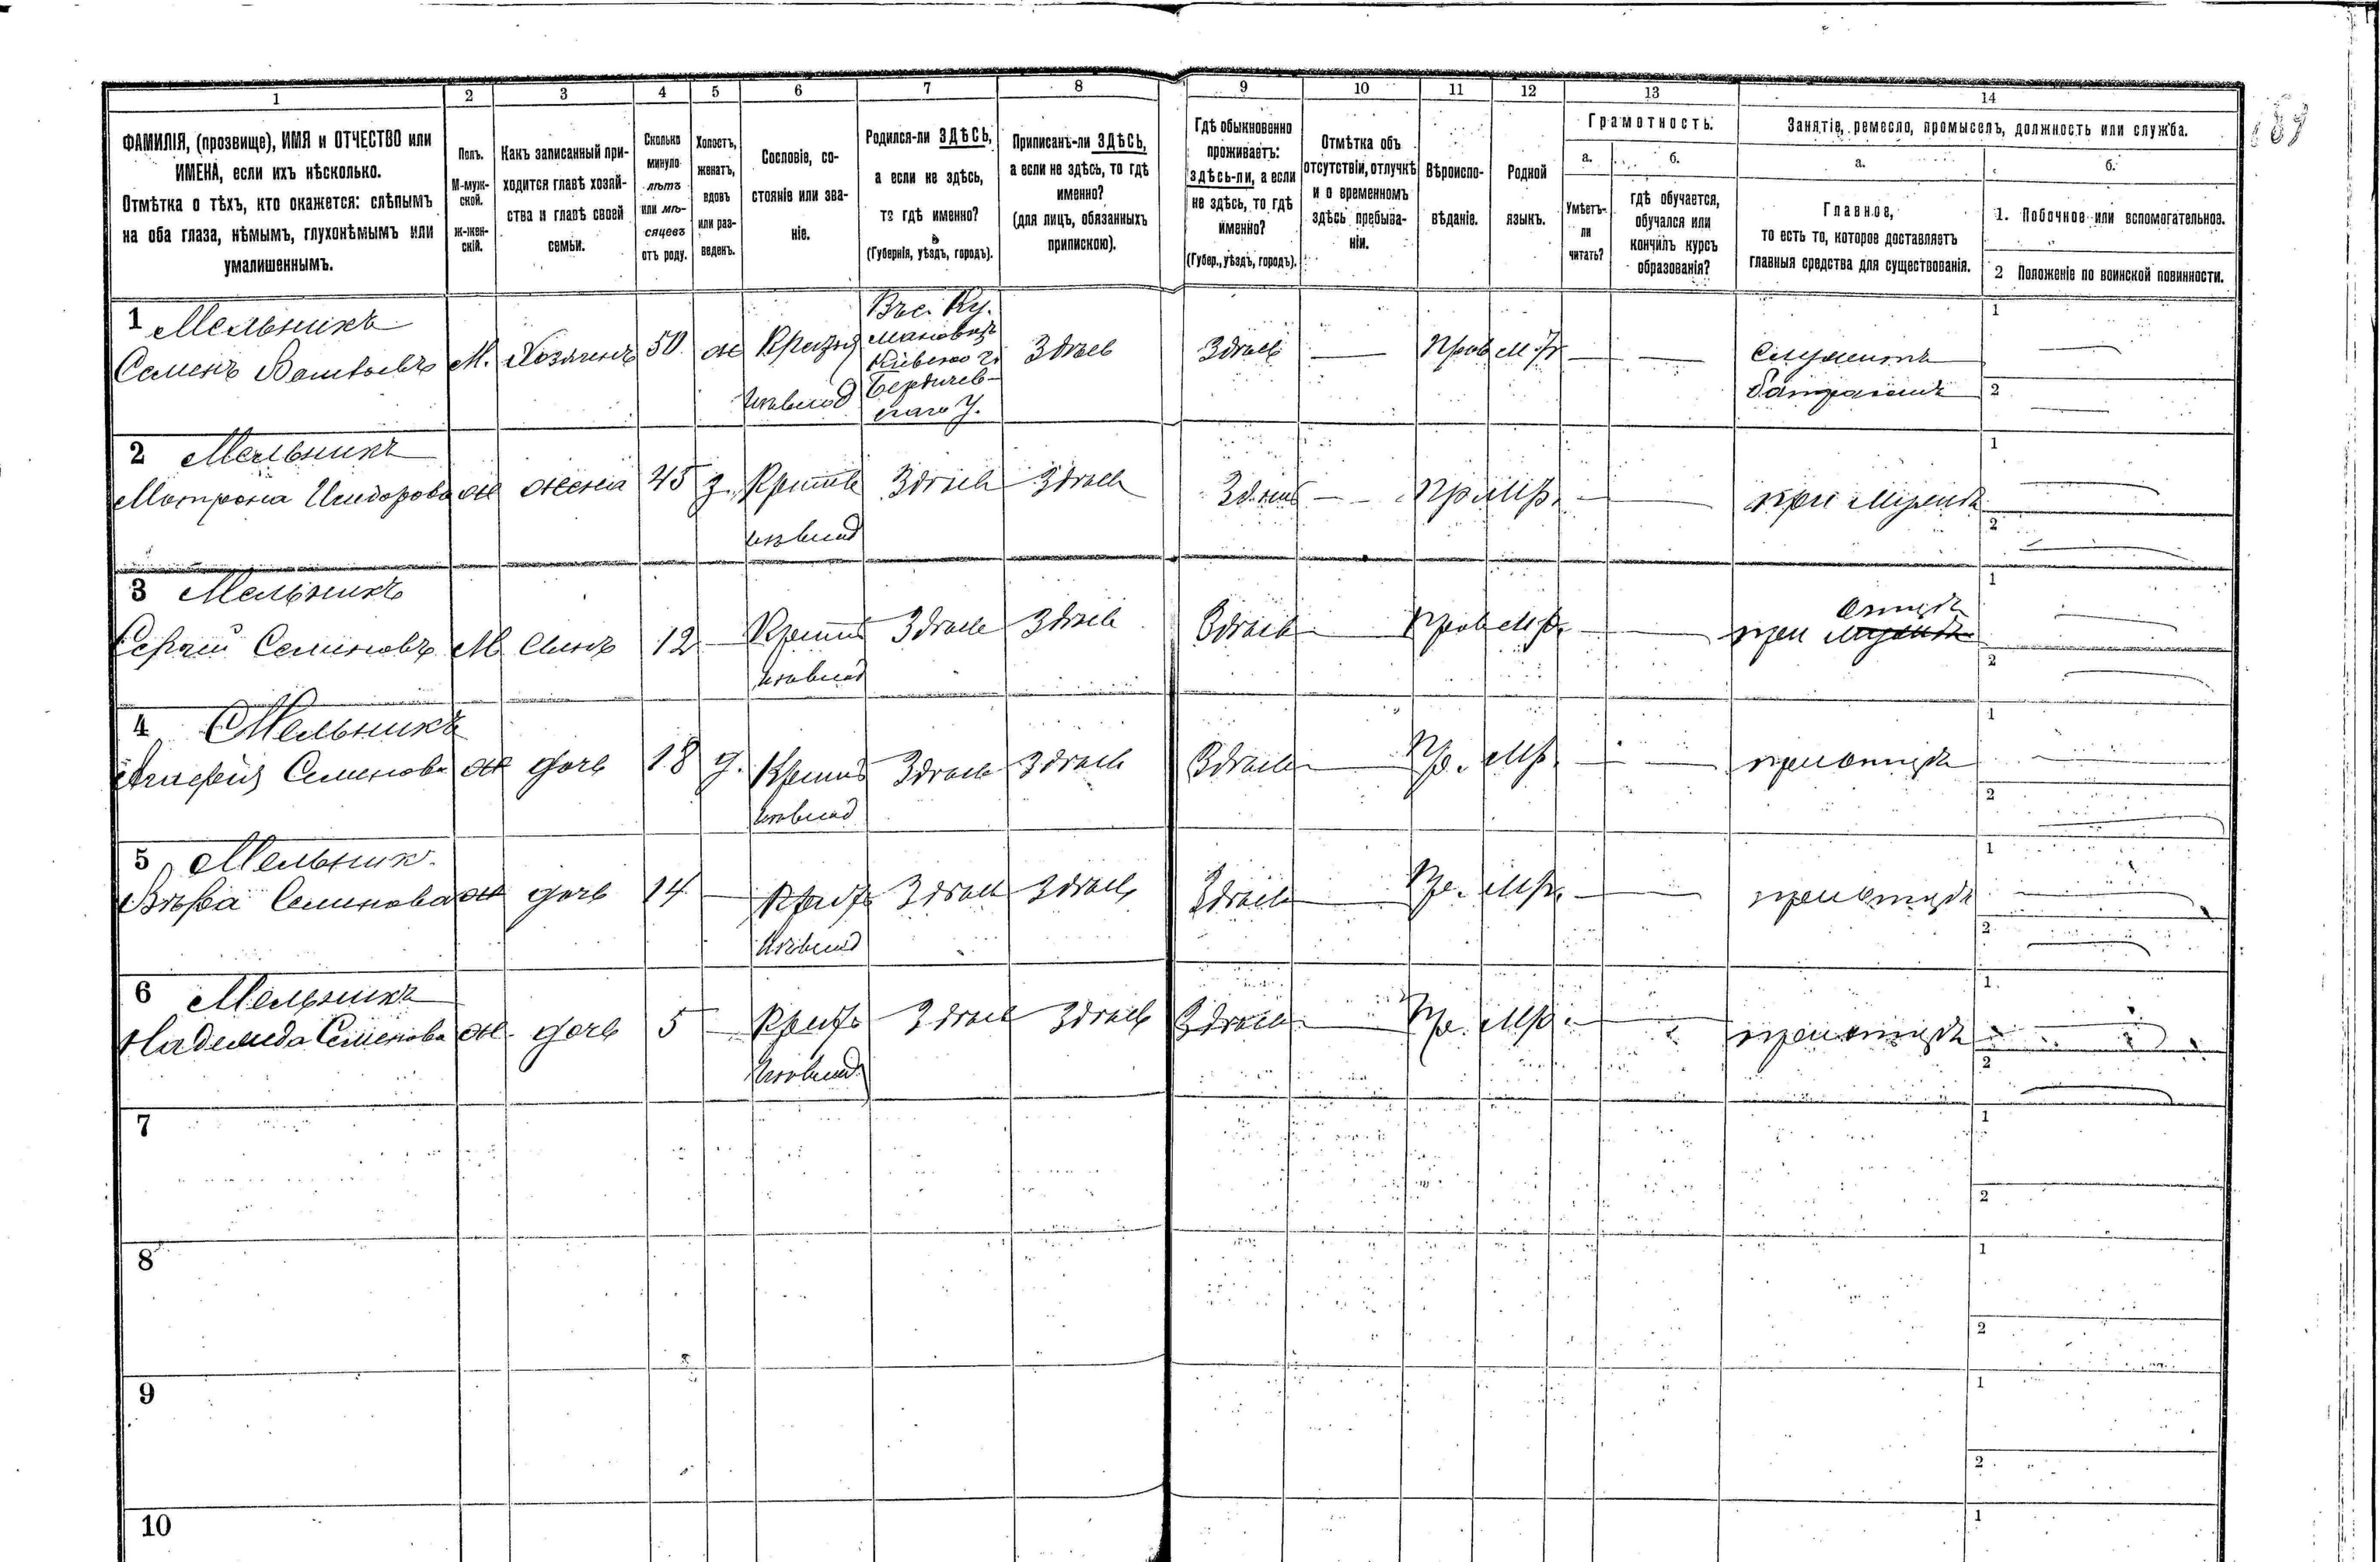 1 2 3 4 5 6 7 8 9 10 11 12 13 14
ФАМИЛІЯ, (прозвище), ИМЯ и ОТЧЕСТВО или
ИМЕНА, если ихъ нѣсколько.
Отмѣтка о тѣхъ, кто окажется: слѣпымъ
на оба глаза, нѣмымъ, глухонѣмымъ или
умалишеннымъ.
Полъ.
М-муж-
ской.
Ж-жен-
скій.
Какъ записанный при-
ходится главѣ хозяй-
ства и главѣ своей
семьи.
Сколько
минуло
лѣтъ
или мѣ-
сяцевъ
отъ роду.
Холостъ,
женатъ,
вдовъ
или раз-
веденъ.
Сословіе, со-
стояніе или зва-
ніе.
Родился-ли ЗДѢСЬ,
а если не здѣсь,
то гдѣ именно?
(Губернія, уѣздъ, городъ).
Приписанъ-ли ЗДѢСЬ,
а если не здѣсь, то гдѣ
именно?
(для лицъ, обязанныхъ
припискою).
Гдѣ обыкновенно
проживаетъ:
здѣсь-ли, а если
не здѣсь, то гдѣ
именно?
(Губер., уѣздъ, городъ).
Отмѣтка объ
отсутствіи, отлучкѣ
и о временномъ
здѣсь пребыва-
ніи.
Вѣроиспо-
вѣданіе.
Родной
языкъ.
Грамотность.
а.
Умѣетъ-
ли
читать?
б.
гдѣ обучается,
обучался или
кончилъ курсъ
образованія?
Занятіе, ремесло, промыселъ, должность или служба.
а.
Главное,
то есть то, которое доставляетъ
главныя средства для существованія.
б.
1. Побочное или вспомогательное.
2 Положеніе по воинской повинности.
1 Мельникъ
Семенъ М. Хозяинъ 50 ж
Кіевской г.
Бердичев-
скаго у.
Здѣсь Здѣсь Прав
1
2
2 Мельникъ
Матрона Исидорова ж жена 45 з. Здѣсь Здѣсь Здѣсь Пр Мр. при мужѣ
1
2
3 Мельникъ
Сергѣй Семеновъ М Сынъ 12 Здѣсь Здѣсь Здѣсь Прав Мр. при отцѣ
1
2
4 Мельникъ
Семенова ж дочь 18 д. Здѣсь Здѣсь Здѣсь Пр. Мр. при отцѣ
1
2
5 Мельник.
Вѣра Семенова ж дочь 14 Здѣсь Здѣсь Здѣсь Пр. Мр. при отцѣ
1
2
6 Мельникъ
Надежда Семенова ж. дочь 5 Здѣсь Здѣсь Здѣсь Пр. Мр. при отцѣ
1
2
7
1
2
8
1
2
9
1
2
10
1